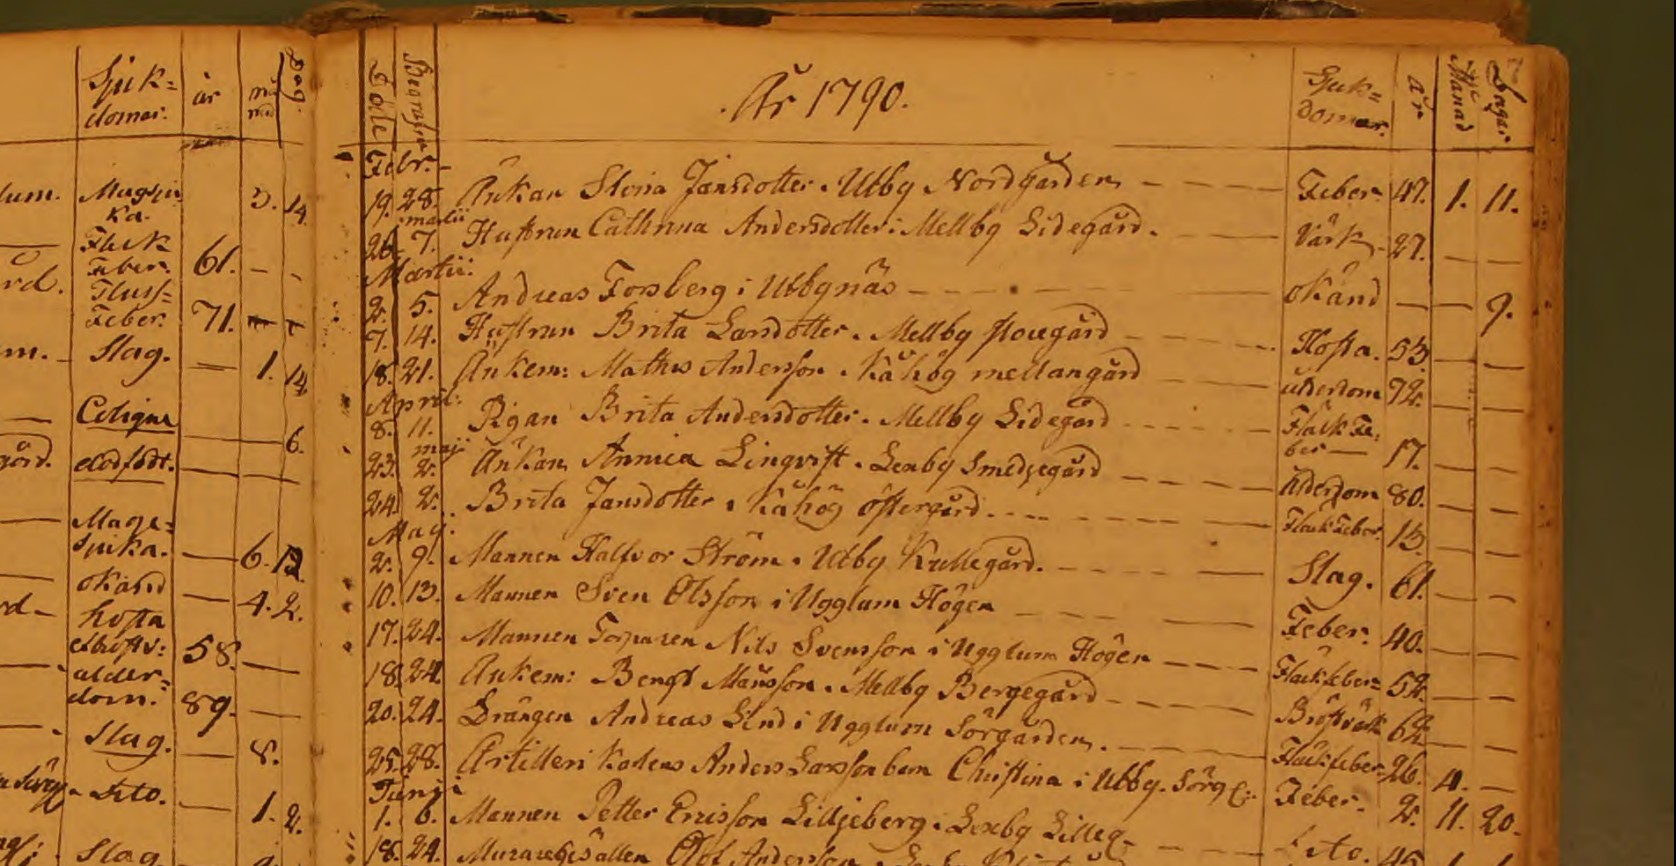 Sjuk=
domar.
år
må
nad
Dag.
lum. Magsju
ka. 3. 14
Fläck
Feber. 61. - -
rd. Fluss=
Feber. 71.
m. Slag. 1. 14
Colique 6.
gård. dödfödt.
Mage=
sjuka. 6. 12.
okänd 4. 2.
rd hosta
58.
ålder=
dom. 89.
Slag. 8.
Dito. 1. 2.
Slag
Död Begrafne År 1790. Sjuk=
domar. år Månad Dagar.
Febr.
19. 28. Änkan Stina Jansdotter. Utby Nordgården Feber. 47. 1. 11.
martii
26. 7. Hustrun Cathrina Andersdotter i Mellby Lidegård. Värk 27.
Martii.
2. 5. Andreas Forsberg i Utbynäs okänd 9.
7. 14. Hustrun Brita Larsdotter. Mellby storegård Hosta. 53
18. 21. Änkem: Mathes Andersson. Kåhög mellangård ålderdom 72.
April.
8. 11. Pigan Brita Andersdotter. Mellby Lidegård Fläck Fe:
ber 17.
maji
23. 2. Änkan Annica Lingvist. Lexby Smedjegård Ålderdom 80.
24. 2. Brita Jansdotter. Kåhög östergård. Fläckfeber. 13.
Maji.
2. 9. Mannen Halfvor Ström. Utby Kullegård. Slag. 61.
10. 13. Mannen Sven Olsson i Ugglum Högen Feber. 40.
17. 24. Mannen Torparen Nils Svensson i Ugglum Högen Fläckfeber 52.
18. 24. Änkem: Bengt Månsson. Mellby Bergegård Bröstvärk 62
20. 24. Drängen Andreas Lind i Ugglum Sörgården. Fläckfeber 26. 4.
25. 28. Artilleri Anders Larsson barn Christina i Utby. Sörg: Feber. 2. 11. 20.
Junii
1. 6. Mannen Petter Ericsson Lilljeberg. Lexby Lilleg. Dito. 45
18. 24. Muraregesällen Olof Andersson. Lexby